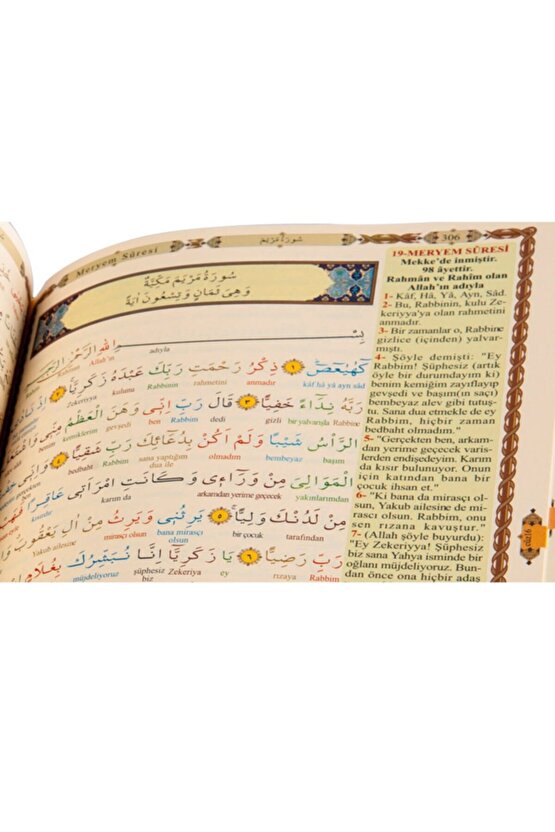 Meryem Sûresi
سُورَةُ مَرْيَمَ
306
سُورَةُ مَرْيَمَ مَكِّيَّةٌ
وَهِيَ ثَمَانٍ وَتِسْعُونَ اٰيَةً
بِسْــــمِ اللّٰهِ الرَّحْمٰنِ الرَّحِيمِ
adıyla Allah'ın
كٓهٰيٰعٓصٓ ۝١ ذِكْرُ رَحْمَتِ رَبِّكَ عَبْدَهُ زَكَرِيَّا ۝٢ اِذْ نَادٰى
kâf hâ yâ ayn sâd anmadır rahmetini Rabbinin kulunu Zekeriyya
رَبَّهُ نِدَٓاءً خَفِيًّا ۝٣ قَالَ رَبِّ اِنّٖى وَهَنَ الْعَظْمُ
Rabbine bir yalvarışla gizli dedi Rabbim ben gevşedi kemiklerim benim
الرَّأْسُ شَيْبًا وَلَمْ اَكُنْ بِدُعَٓائِكَ رَبِّ شَقِيًّا ۝٤ وَاِنّٖى
başım bembeyaz olmadım sana yaptığım dua ile Rabbim bedbaht
الْمَوَالِيَ مِنْ وَرَٓاءٖى وَكَانَتِ امْرَاَتٖى عَاقِرًا
yakınlarımdan arkamdan yerime geçecek karım da kısır
مِنْ لَدُنْكَ وَلِيًّا ۝٥ يَرِثُنٖى وَيَرِثُ مِنْ اٰلِ يَعْقُوبَ
tarafından bir çocuk bana mirasçı olsun mirasçı olsun Yakub ailesine
رَبِّ رَضِيًّا ۝٦ يَا زَكَرِيَّٓا اِنَّا نُبَشِّرُكَ بِغُلَامٍ
Rabbim rızaya ey Zekeriyya şüphesiz biz müjdeliyoruz
19-MERYEM SÛRESİ
Mekke'de inmiştir.
98 âyettir.
Rahmân ve Rahîm olan
Allah'ın adıyla
1- Kâf, Hâ, Yâ, Ayn, Sâd.
2- Bu, Rabbinin, kulu Ze-
keriyya'ya olan rahmetini
anmadır.
3- Bir zamanlar o, Rabbine
gizlice (içinden) yalvar-
mıştı.
4- Şöyle demişti: "Ey
Rabbim! Şüphesiz (artık
öyle bir durumdayım ki)
benim kemiğim zayıflayıp
gevşedi ve başım(ın saçı)
bembeyaz alev gibi tutuş-
tu. Sana dua etmekle de ey
Rabbim, hiçbir zaman
bedbaht olmadım."
5- "Gerçekten ben, arkam-
dan yerime geçecek varis-
lerden endişedeyim. Karım
da kısır bulunuyor. Onun
için katından bana bir
çocuk ihsan et."
6- "Ki bana da mirasçı ol-
sun, Yakub ailesine de mi-
rasçı olsun. Rabbim, onu
sen rızana kavuştur."
7- (Allah şöyle buyurdu):
"Ey Zekeriyya! Şüphesiz
biz sana Yahya isminde bir
oğlanı müjdeliyoruz. Bun-
dan önce ona hiçbir adaş